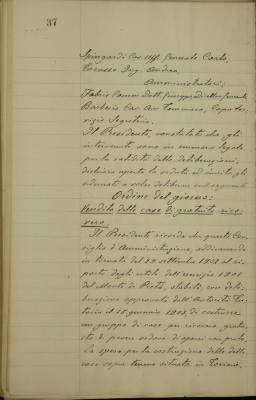 37
Spingardi Cav. Uff. Generale Carlo,
Perasso Ing. Andrea,
Amministratori;
Fabris Comm. Dott. Giuseppe, Direttore Generale
Barberis Cav. Avv. Tommaso, Capo Ser-
vizio Segreteria.
Il Presidente, constatato che gli
intervenuti sono in numero legale
per la validità delle deliberazioni,
dichiara aperta la seduta ed invita gli
adunati a voler deliberare sul seguente
Ordine del giorno:
Vendita delle case di gratuito rico-
vero.
Il Presidente ricorda che questo Con-
siglio d'Amministrazione, addivenendo
in tornata del 29 settembre 1902 al ri-
parto degli utili dell'esercizio 1901
del Monte di Pietà, stabilì, con deli-
berazione approvata dall'Autorità Tu-
toria il 15 gennaio 1903 di costrurre
un gruppo di case per ricovero gratu-
ito di povere vedove di operai con prole.
La spesa per la costruzione delle dette
case sopra terreno situato in Torino,